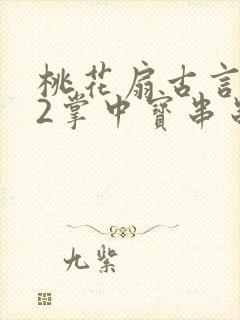 桃花扇古言
2掌中寳串
九紫